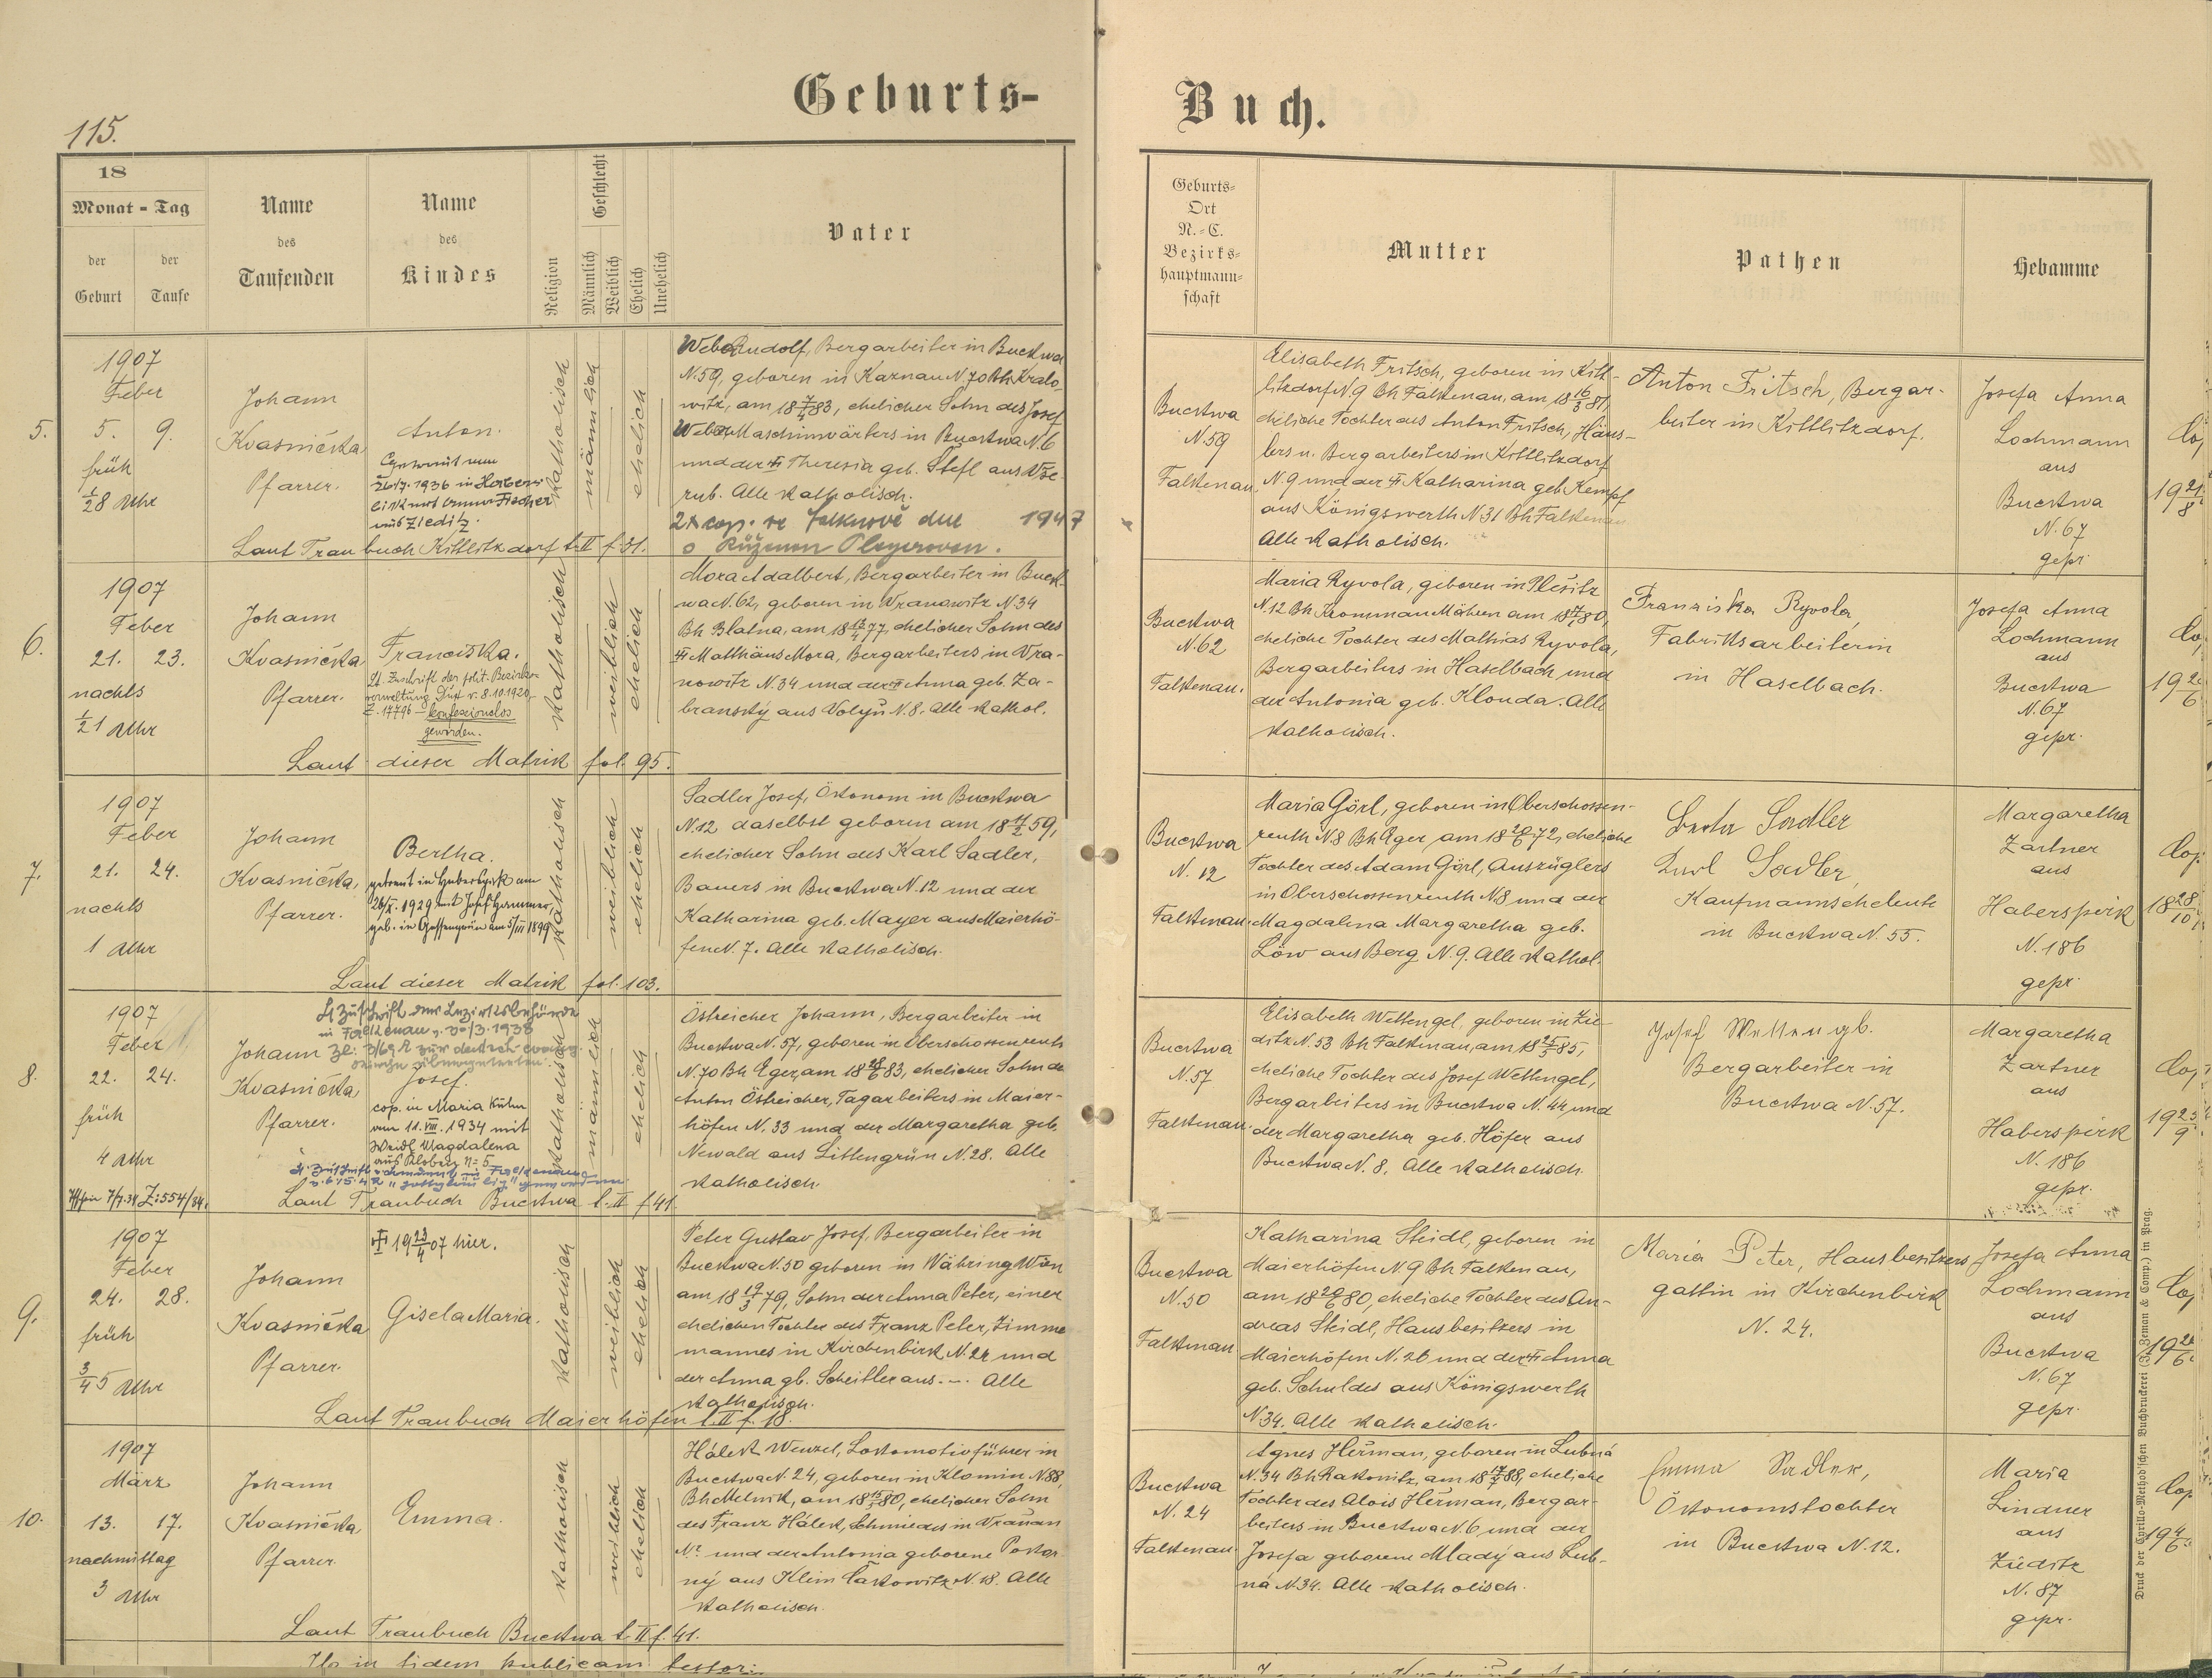 Geburts-
Buch.
115.
18
Monat - Tag
der Geburt
der Taufe
Name des Taufenden
Name des Kindes
Religion
Geschlecht
Männlich
Weiblich
Ehelich
Unehelich
Vater
Geburts-
Ort
N.-C.
Bezirks-
hauptmann-
schaft
Mutter
Pathen
Hebamme
5.
1907
Feber
5. 9.
früh
½8 Uhr
Johann
Kvasnička
Pfarrer.
Anton.
26/7. 1936 in Habers-
aus Zieditz.
katholisch
männlich
ehelich
Weber Rudolf, Bergarbeiter in Buckwa
N.59, geboren in Kaznau N.70 Bh Kralo-
witz, am 18 7/4 83, ehelicher Sohn des Josef
Weber, Maschinwärters in Buckwa N.6
und der Theresia geb. Stefl aus Wše-
rub. Alle katholisch.
1947
Laut Traubuch Kittlitzdorf t. II f. 31.
Buckwa
N.59
Falkenau
Elisabeth Fritsch, geboren in Kitt-
litzdorf N.9 Bh Falkenau, am 18 16/3 87,
eheliche Tochter aus Anton Fritsch, Häus-
lers u. Bergarbeiters in Kittlitzdorf
N.9 und der Katharina geb. Kempf
aus Königswerth N 31 Bh Falkenau
Alle katholisch.
Anton Fritsch, Bergar-
beiter in Kittlitzdorf.
Josefa Anna
Lochmann
aus
Buckwa
N.67
gepr
6.
1907
Feber
21. 23.
nachts
½1 Uhr
Johann
Kvasnička
Pfarrer.
Franciska.
Lt. Zuschrift der polit. Bezirks-
verwaltung Dux v. 8.10.1920,
Z. 17796 - konfessionslos
geworden.
katholisch
weiblich
ehelich
Mora Adalbert, Bergarbeiter in Buck-
wa N.62, geboren in Wranowitz N.34
Bh Blatna, am 18 77, ehelicher Sohn des
Matthäus Mora, Bergarbeiters in Wra-
nowitz N.34 und der Anna geb. Za-
branský aus Volyň N.8. Alle kathol.
Laut dieser Matrik fol. 95.
Buckwa
N.62
Falkenau.
Maria Ryvola, geboren in Plešitz
N.12 Bh Krommau Mähren am 18 80,
eheliche Tochter des Mathias Ryvola,
Bergarbeiters in Haselbach und
der Antonia geb. Klouda. Alle
katholisch.
Franziska Ryvola,
Fabriksarbeiterin
in Haselbach.
Josefa Anna
Lochmann
aus
Buckwa
N.67
gepr.
7.
1907
Feber
21. 24.
nachts
1 Uhr
Johann
Kvasnička,
Pfarrer.
Bertha.
getraut in Haberspirk am
26/X. 1929 mit Josef Hammer,
geb. in Gossengrün am 5/III 1899
katholisch
weiblich
ehelich
Sadler Josef, Ökonom in Buckwa
N.12 daselbst geboren am 18 11/2 59,
ehelicher Sohn des Karl Sadler,
Bauers in Buckwa N.12 und der
Katharina geb. Mayer aus Maierhö-
fen N.7. Alle katholisch.
Laut dieser Matrik fol. 103.
Buckwa
N. 12
Falkenau.
Maria Görl, geboren in Oberschossen-
reuth N.8 Bh Eger, am 18 20/6 72, eheliche
Tochter des Adam Görl, Auszüglers
in Oberschossenreuth N.8 und der
Magdalena Margaretha geb.
Löw aus Berg N.9. Alle kathol.
Berta Sadler
Karl Sadler,
Kaufmannseheleute
in Buckwa N. 55.
Margaretha
Zartner
aus
Haberspirk
N. 186
gepr.
8.
1907
Feber
22. 24.
früh
4 Uhr
Lt Zuschrift der Bezirksbehörde
in Falkenau v. 30/3. 1938
Johann
Kvasnička,
Pfarrer.
Josef.
cop. in Maria Kulm
am 11. VIII. 1934 mit
Weidl Magdalena
aus Kloben N= 5
Z: 554/34.
katholisch
männlich
ehelich
Östreicher Johann, Bergarbeiter in
Buckwa N. 57, geboren in Oberschossenreuth
N.70 Bh Eger, am 18 28/6 83, ehelicher Sohn des
Anton Östreicher, Tagarbeiters in Maier-
höfen N. 33 und der Margaretha geb.
Newald aus Littengrün N.28. Alle
katholisch.
Laut Traubuch Buckwa t. II f. 41.
Buckwa
N.57
Falkenau.
Elisabeth Wettengel, geboren in Zie-
ditz N. 53 Bh Falkenau, am 18 25/5 85,
eheliche Tochter des Josef Wettengel,
Bergarbeiters in Buckwa N. 44, und
der Margaretha geb. Höfer aus
Buckwa N. 8. Alle katholisch.
Josef Wettengl.
Bergarbeiter in
Buckwa N.57.
Margaretha
Zartner
aus
Haberspirk
N. 186
gepr.
9.
1907
Feber
24. 28.
früh
¾5 Uhr
Johann
Kvasnička
Pfarrer.
19 23/4 07 hier.
Gisela Maria.
katholisch
weiblich
ehelich
Peter Gustav Josef, Bergarbeiter in
Buckwa N.50 geboren in Währing Wien
am 18 19/3 79, Sohn der Anna Peter, einer
ehelichen Tochter des Franz Peter, Zimmer-
mannes in Kirchenbirk N.24 und
der Anna gb. Scheitler aus.-. Alle
katholisch.
Laut Traubuch Maierhöfen t. II f. 18.
Buckwa
N.50
Falkenau
Katharina Steidl, geboren in
Maierhöfen N 9 Bh Falkenau,
am 18 20/6 80, eheliche Tochter des An-
dreas Steidl, Hausbesitzers in
Maierhöfen N. 26 und der Anna
geb. Schuldes aus Königswerth
N 34. Alle katholisch.
Maria Peter, Hausbesitzers
gattin in Kirchenbirk
N. 24.
Josefa Anna
Lochmann
aus
Buckwa
N.67
gepr.
10.
1907
März
13. 17.
nachmittag
3 Uhr
Johann
Kvasnička
Pfarrer.
Emma.
katholisch
weiblich
ehelich
Hálek Wenzel, Lokomotivführer in
Buckwa N. 24, geboren in Klomin N.88,
Bh Melnik, am 18 80, ehelicher Sohn
des Franz Hálek, Schmiedes in Wraňan
N.? und der Antonia geborene Pokor-
ný aus Klein Čakowitz N. 18. Alle
katholisch.
Laut Traubuch Buckwa t. II f. 41.
Buckwa
N. 24
Falkenau
Agnes Heřman, geboren in Lubná
N.34 Bh Rakonitz, am 18 88, eheliche
Tochter des Alois Heřman, Bergar-
beiters in Buckwa N.6 und der
Josefa geborene Mladý aus Lub-
ná N.34. Alle katholisch.
Emma Sadler,
Ökonomstochter
in Buckwa N.12.
Maria
Lindner
aus
Zieditz
N. 87
gepr.
in fidem publicam
Druck der Cyrillo-Method'schen Buchdruckerei (J. Zeman & Comp.) in Prag.